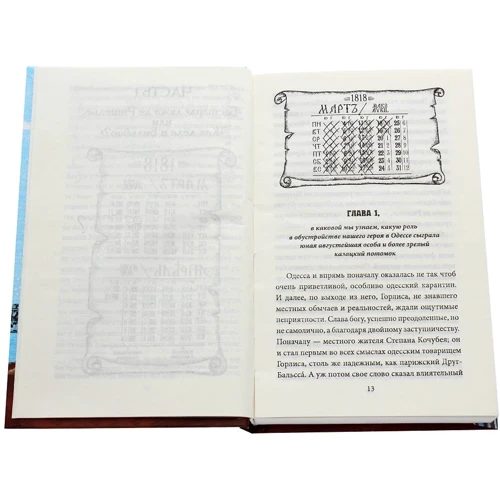 1818
МАРТЪ
ПН
ВТ
СР
ЧТ
ПТ
СБ
ВС
ГЛАВА 1,
в каковой мы узнаем, какую роль
в обустройстве нашего героя в Одессе сыграла
юная августейшая особа и более зрелый
казацкий потомок
Одесса и впрямь поначалу оказалась не так чтоб
очень приветливой, особливо одесский карантин.
И далее, по выходе из него, Горлиса, не знавшего
местных обычаев и реальностей, ждали ощутимые
неприятности. Слава богу, успешно преодоленные, но
не самолично, а благодаря двойному заступничеству.
Поначалу — местного жителя Степана Кочубея; он
и стал первым во всех смыслах одесским товарищем
Горлиса, столь же надежным, как парижский Друг-
Бальсса́. А уж потом свое слово сказал влиятельный
13